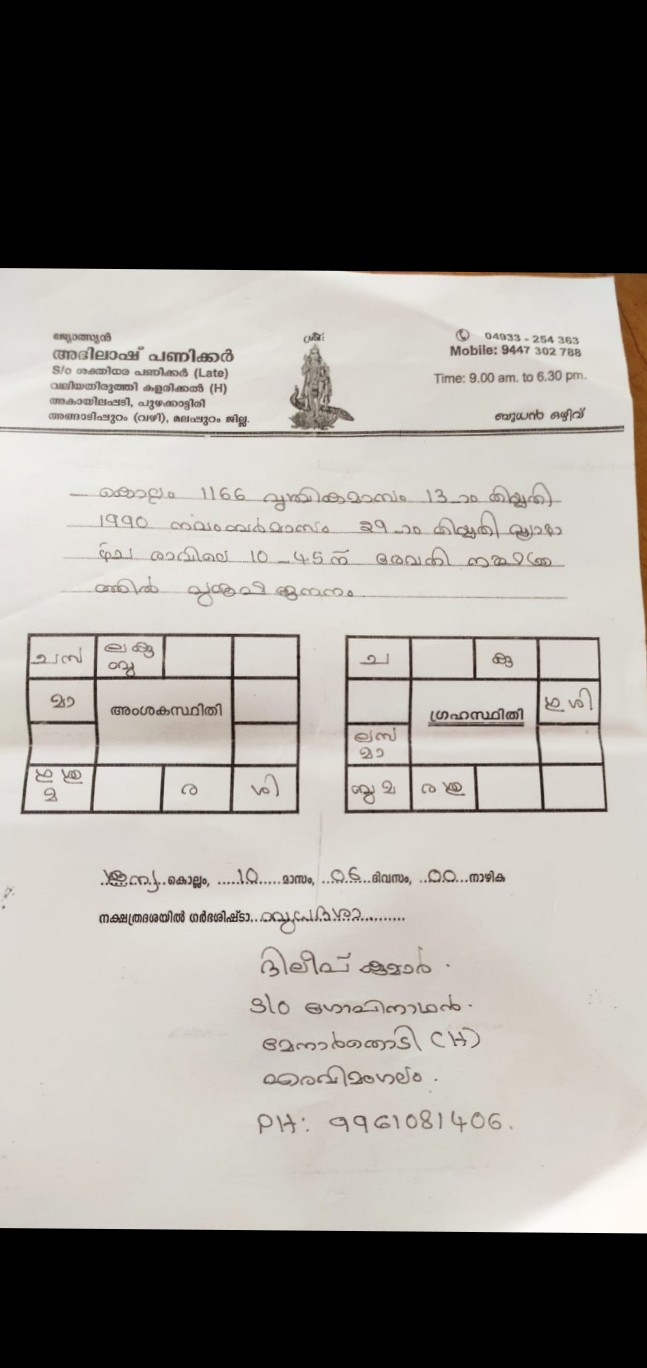 ജ്യോത്സ്യൻ
അഭിലാഷ് പണിക്കർ
S/o ശക്തിധര പണിക്കർ (Late)
വലിയതിരുത്തി കളരിക്കൽ (H)
അകായിലപ്പടി, പുഴക്കാട്ടിരി
അങ്ങാടിപ്പുറം (വഴി), മലപ്പുറം ജില്ല.
ശ്രീഃ
04933 - 254 363
Mobile: 9447 302 788
Time: 9.00 am. to 6.30 pm.
ബുധൻ ഒഴിവ്
കൊല്ലം 1166 വൃശ്ചികമാസം 13 ാം തിയ്യതി
1990 നവംബർമാസം 29 ാം തിയ്യതി വ്യാഴാ
ഴ്ച രാവിലെ 10 - 45 ന് രേവതി നക്ഷത്ര
ത്തിൽ പുരുഷജനനം
ചസ ല കു
ബു
മാ അംശകസ്ഥിതി
ഗു ശു
മ ര ശി
ച കു
ഗ്രഹസ്ഥിതി ഗു ശി
ലസ
മാ
ബു മ ര ശു
കൊല്ലം, 10 മാസം, 06 ദിവസം, 00 നാഴിക
നക്ഷത്രദശയിൽ ഗർഭശിഷ്ടാ
ദിലീപ് കുമാർ .
S/o ഗോപിനാഥൻ .
മേനാർതൊടി (H)
വൈരവിമംഗലം .
PH: 9961081406.